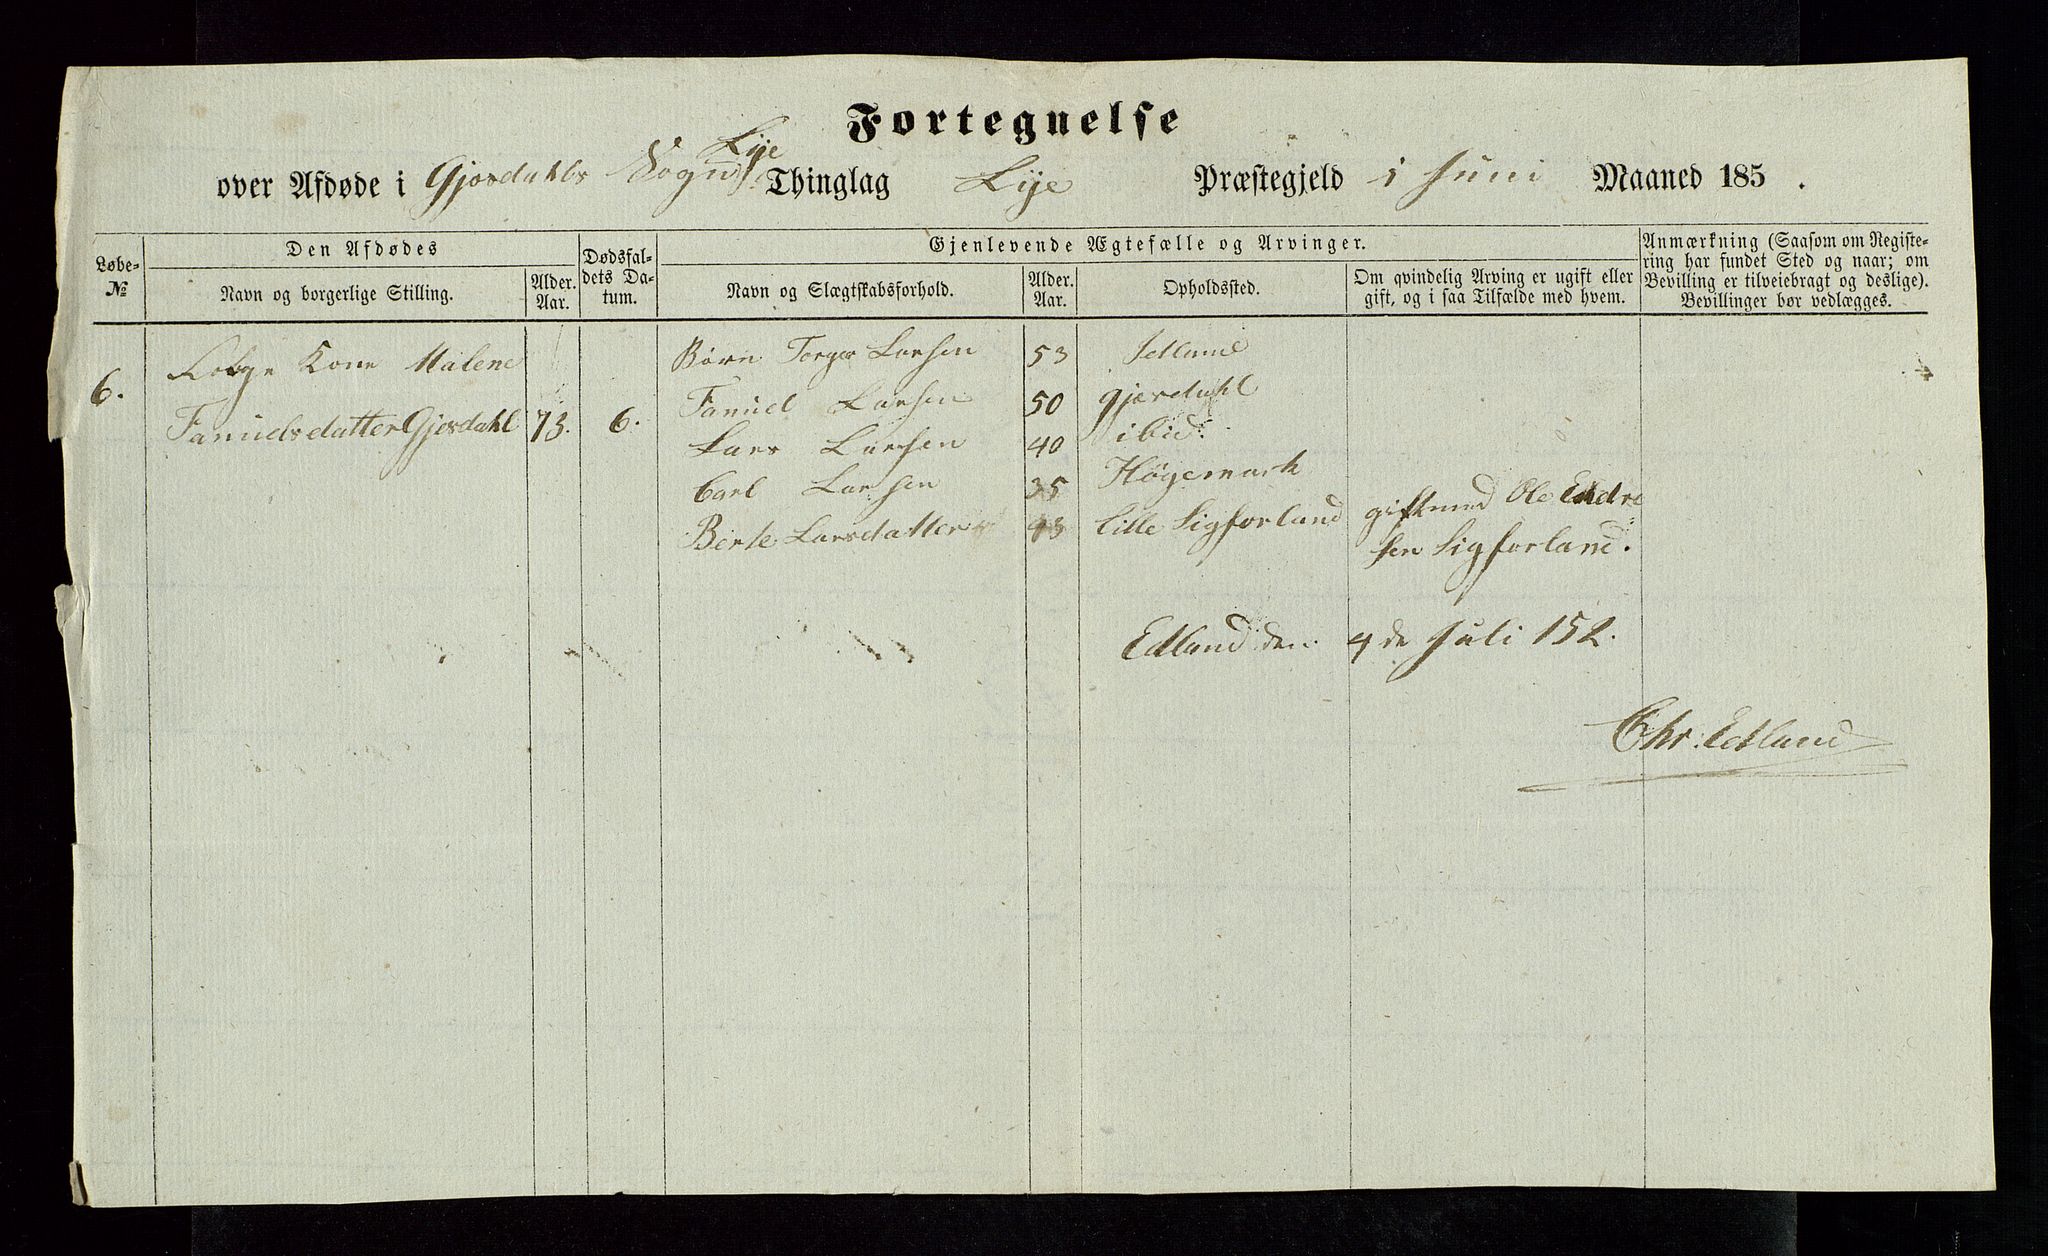 Fortegnelse
over Afdøde i Gjesdahls Sogn Lye Thinglag Lye Præstegjeld i Juni Maaned 185 .
Løbe-
№
Den Afdødes
Navn og borgerlige Stilling.
Alder.
Aar.
Dødsfal-
dets Da-
tum.
Gjenlevende Ægtefælle og Arvinger.
Navn og Slægtskabsforhold.
Alder.
Aar.
Opholdssted.
Om qvindelig Arving er ugift eller
gift, og i saa Tilfælde med hvem.
Anmærkning (Saasom om Registe-
ring har fundet Sted og naar; om
Bevilling er tilveiebragt og deslige).
Bevillinger bør vedlægges.
6. Kone Malene
Tanuelsdatter Gjesdahl 73. 6.
Børn Torger Larsen 53
Tanuel Larsen 50 Gjesdahl
Lars Larsen 40 ibid:
Carl Larsen 35 Høgemark
Berte Larsdatter 43 Lille Sigforland gift med Ole Endre
sen Sigforland.
Edland den 4de Juli 152.
Chr. Edland